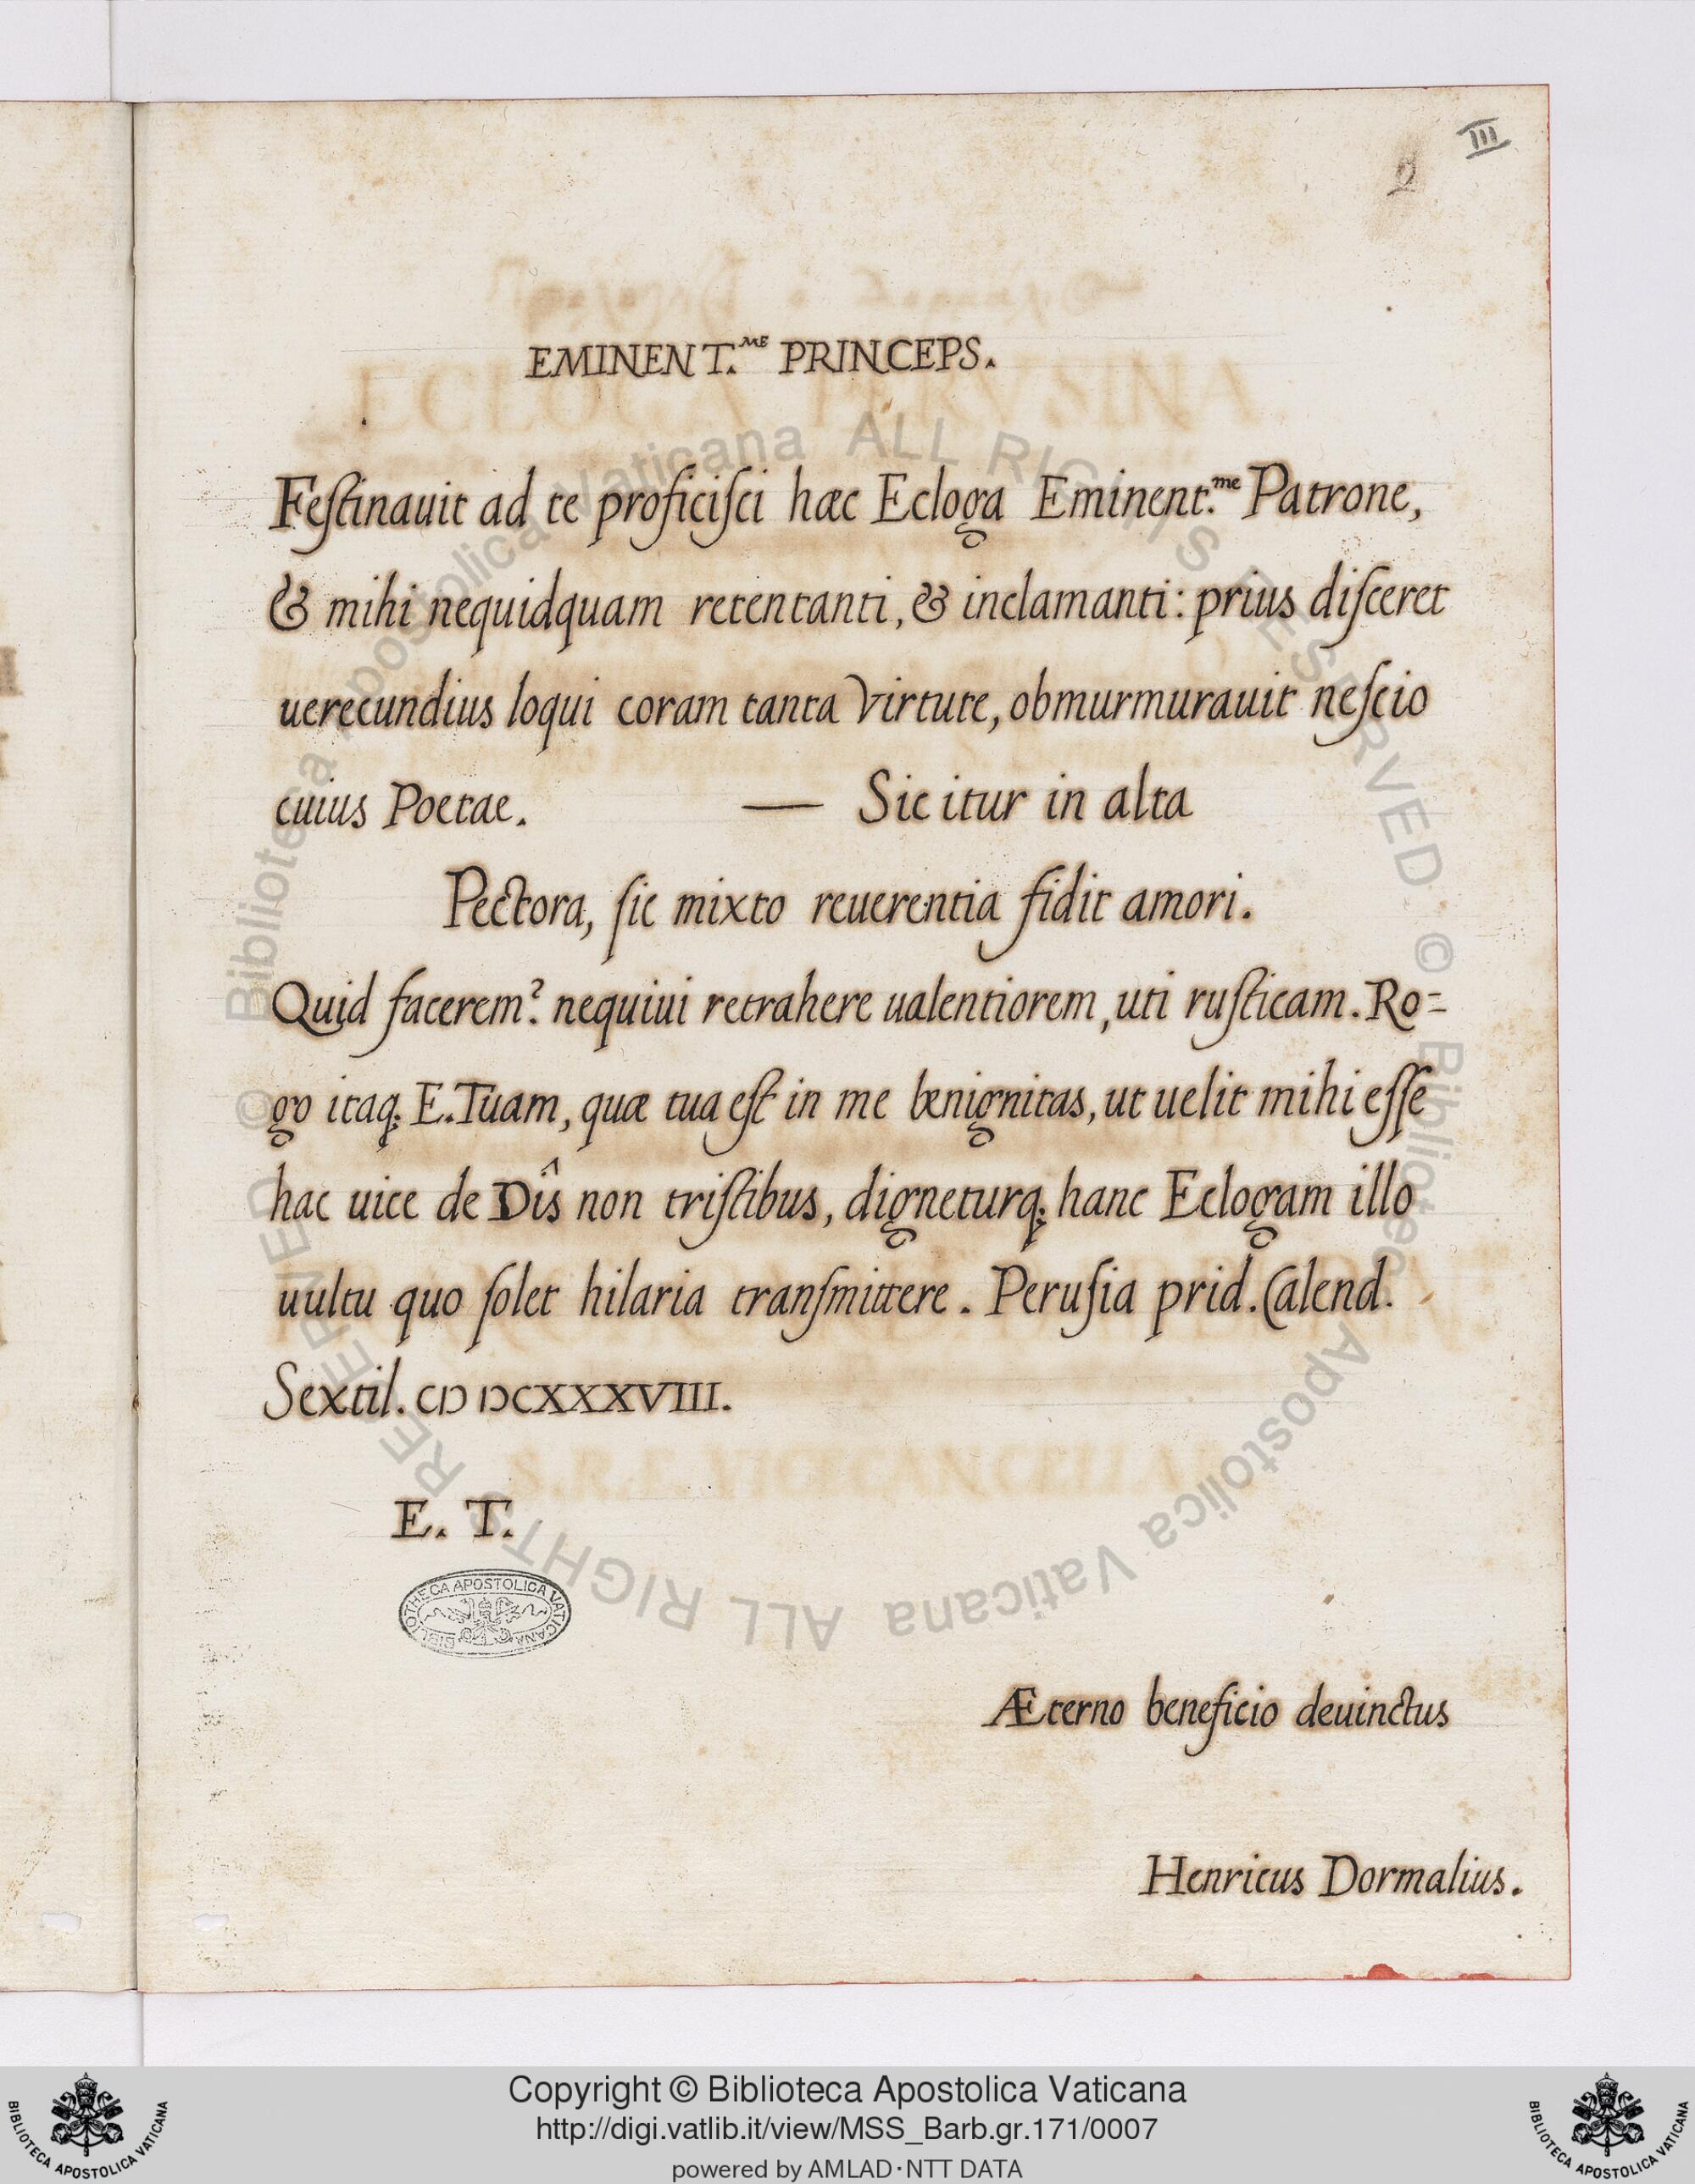 III
2
EMINENT.ME PRINCEPS.
Feſtinauit ad te proficiſci hæc Ecloga Eminent.me Patrone,
& mihi nequidquam retentanti, & inclamanti: prius diſceret
uerecundius loqui coram tanta Virtute, obmurmurauit neſcio
cuius Poetae. — Sic itur in alta
Pectora, ſic mixto reuerentia fidit amori.
Quid facerem? nequiui retrahere ualentiorem, uti ruſticam. Ro=
go itaq; E. Tuam, quæ tua eſt in me benignitas, ut uelit mihi eſſe
hac uice de Dîs non triſtibus, digneturq; hanc Eclogam illo
uultu quo ſolet hilaria tranſmittere. Peruſia prid. Calend.
Sextil. CIↃ IↃCXXXVIII.
E. T.
BIBLIOTHECA APOSTOLICA VATICANA
Æterno beneficio deuinctus
Henricus Dormalius.
© Biblioteca Apostolica Vaticana ALL RIGHTS RESERVED
© Biblioteca Apostolica Vaticana ALL RIGHTS RESERVED
Copyright © Biblioteca Apostolica Vaticana
http://digi.vatlib.it/view/MSS_Barb.gr.171/0007
powered by AMLAD·NTT DATA
BIBLIOTECA APOSTOLICA VATICANA
BIBLIOTECA APOSTOLICA VATICANA